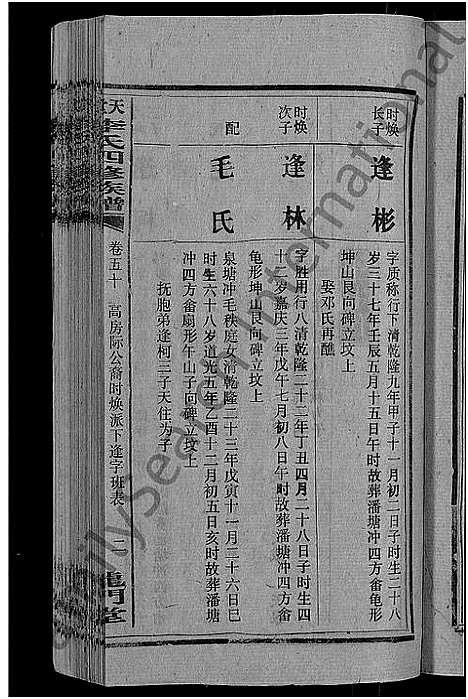 时焕长子
逢彬
字质称行下清乾隆九年甲子十一月初二日子时生二十八
岁三十七年壬辰五月十五日午时故葬潘塘冲四方畲龟形
坤山艮向碑立坟上
娶邓氏再醮
时焕次子
逢林
字胜用行八清乾隆二十二年丁丑四月二十八日子时生四
十二岁嘉庆三年戊午七月初八日午时故葬潘塘冲四方畲
龟形坤山艮向碑立坟上
配
毛氏
泉塘冲毛秩庭女清乾隆二十三年戊寅十一月二十六日巳
时生六十八岁道光五年乙酉十二月初五日亥时故葬潘塘
冲四方畲扇形午山子向碑立坟上
抚胞弟逢柯三子天住为子
李氏四修族谱
卷五十
高房际公裔时焕派下逢字班表
龙门堂
FamilySearch International